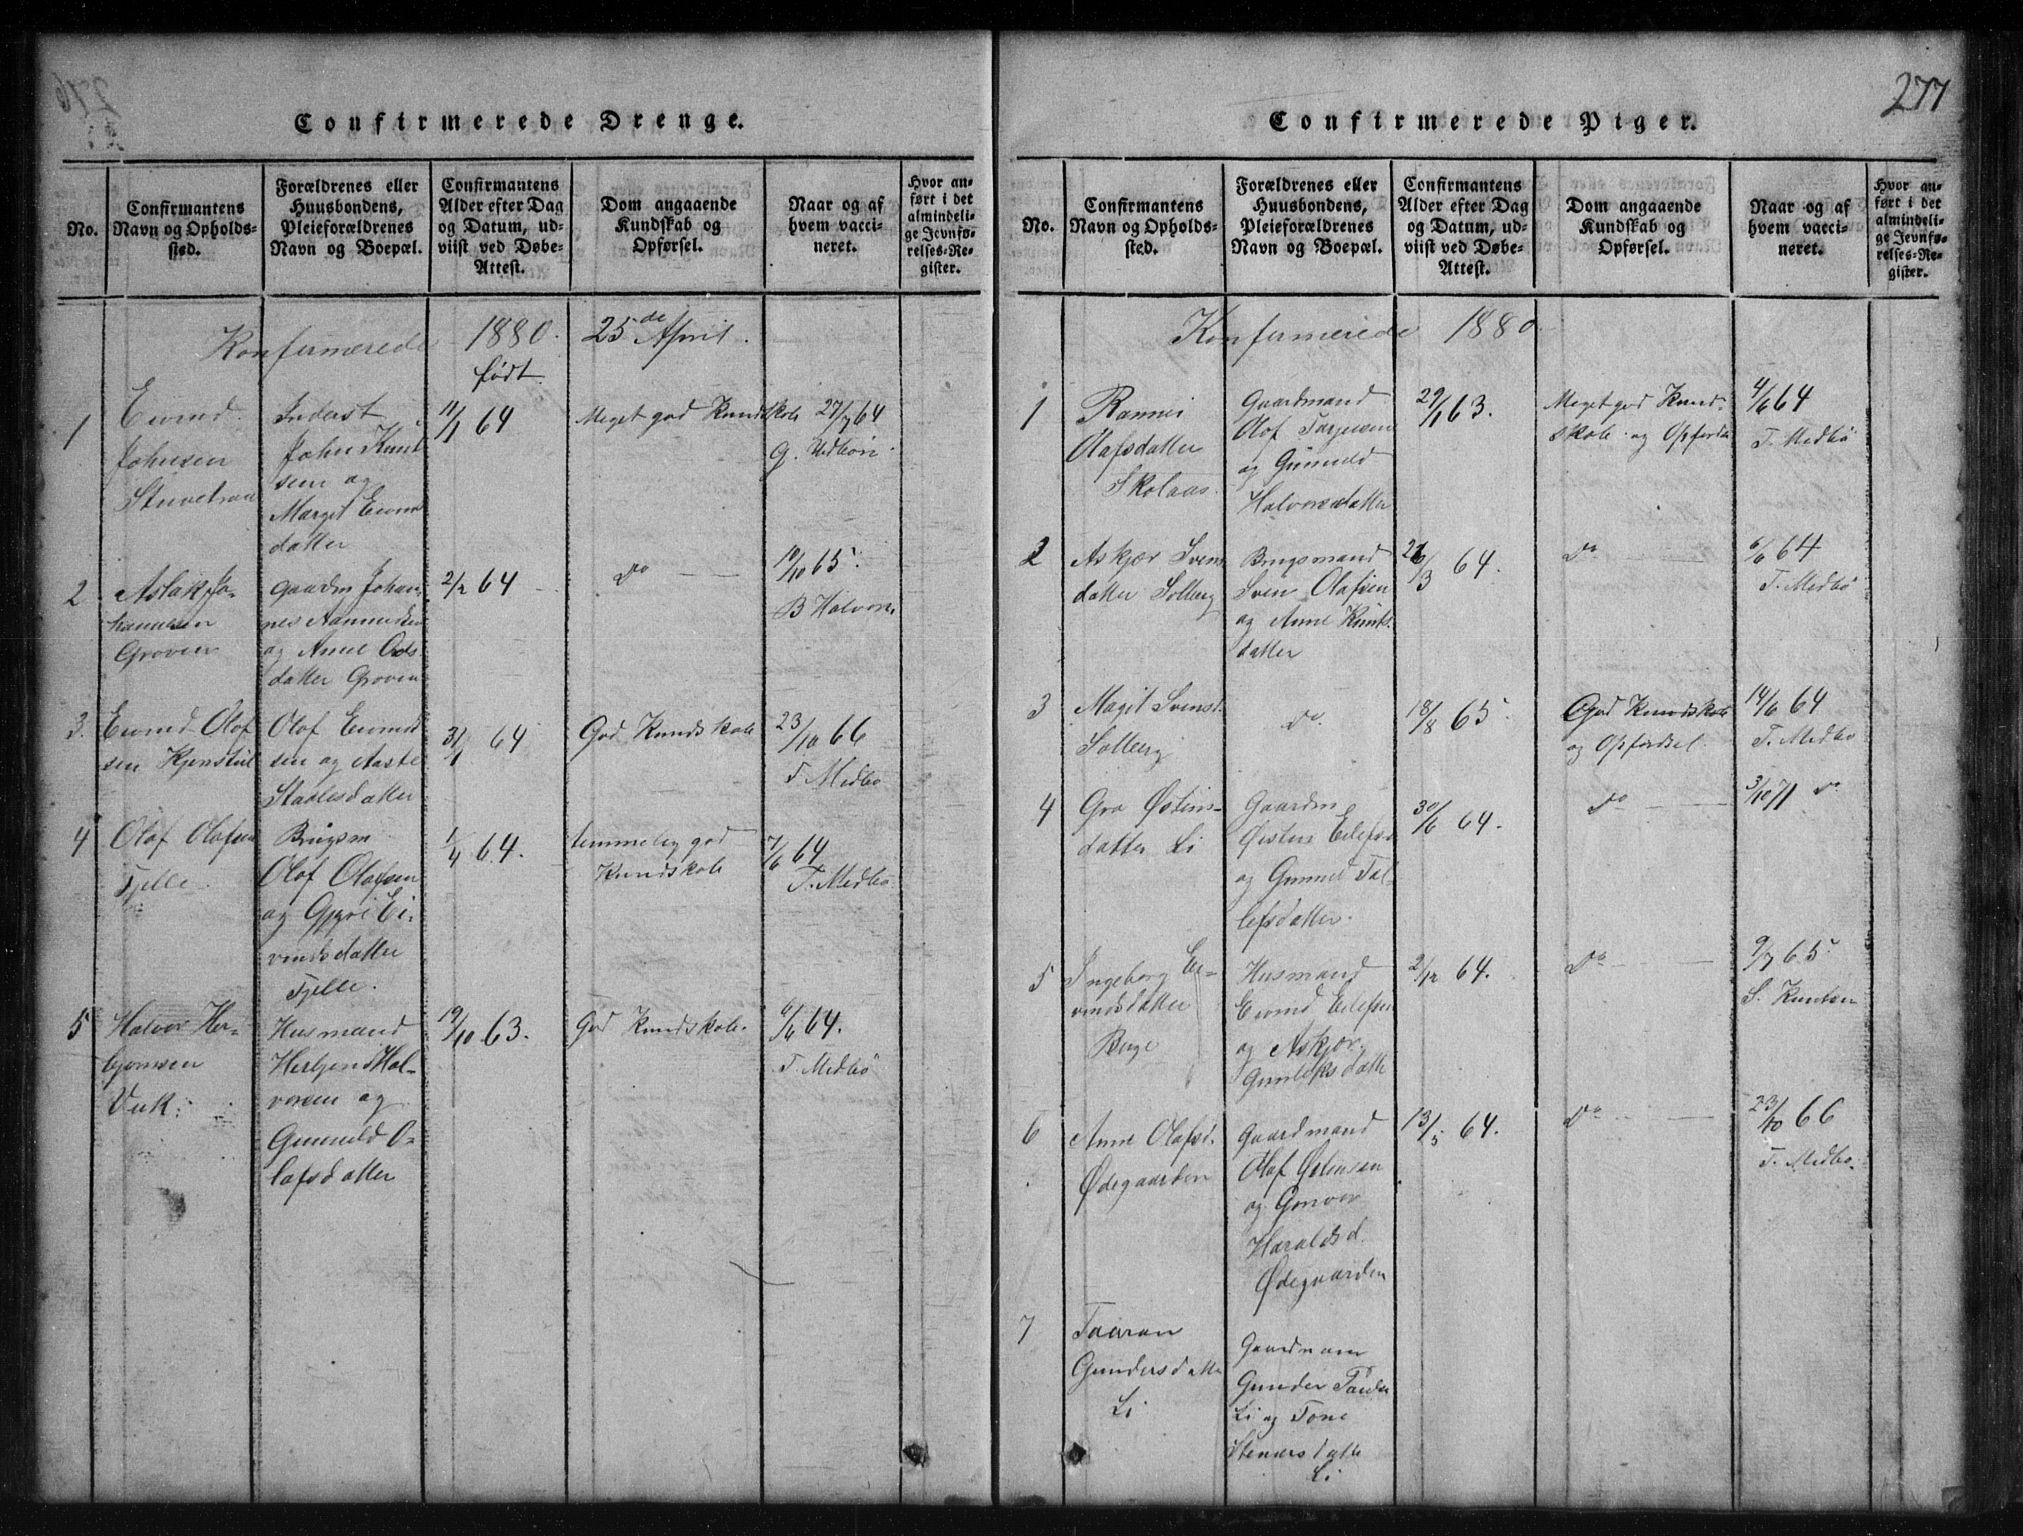 277
Confirmerede Drenge.
No.
Confirmantens
Navn og Opholds-
sted.
Forældrenes eller
Huusbondens,
Pleieforældrenes
Navn og Boepæl.
Confirmantens
Alder efter Dag
og Datum, ud-
viist ved Døbe-
Attest.
Dom angaaende
Kundskab og
Opførsel.
Naar og af
hvem vacci-
neret.
Hvor an-
ført i det
almindeli-
ge Jevnfø-
relses-Re-
gister.
Konfirmerede 1880. 25de April.
født.
1
Eivind
Johnsen
Inderst
John Knut
sen og
Marget Eivin
datter
11/1 64
Meget god Kundskab
27/7 64
2
Aslak Jo-
hannesen
Groven
Gaardm Johan-
nes
og Anne
datter Groven
2/2 64
Do
19/10 65.
B Halvors
3.
Eivind Olof
sen
Olof Eivind
sen og Aaste
datter
31/1 64
God Kundskab
23/10 66
T. Medbø
4
Olof Olofsen
Fjelle
Brugsm
Olof Olofsen
og Gjyri Ei-
vindsdatter
Fjelle.
1/4 64.
temmelig god
Kundskab
7/6 64
T. Medbø
5
Halvor Her-
bjørnsen
Husmand
Herbjørn Hal-
vorsen og
Gunuld O-
lafsdatter
19/10 63.
God Kundskab.
6/6 64.
T. Medbø
Confirmerede Piger.
No.
Confirmantens
Navn og Opholds-
sted.
Forældrenes eller
Huusbondens,
Pleieforældrenes
Navn og Boepæl.
Confirmantens
Alder efter Dag
og Datum, ud-
viist ved Døbe-
Attest.
Dom angaaende
Kundskab og
Opførsel.
Naar og af
hvem vacci-
neret.
Hvor an-
ført i det
almindeli-
ge Jevnfø-
relses-Re-
gister.
Konfirmerede 1880.
1
Rannei
Olafsdatter
Skolaas.
Gaardmand
Olof Tarjeisen
og Gunuld
Halvorsdatter
29/1 63.
Meget god Kund-
skab og Opførsel
4/6 64
T. Medbø
2
Askjær Svens
datter Solberg
Brugsmand
Sven Olafsen
og Anne Knuts-
datter
64.
Do
6/6 64
T. Medbø
3
Magit Svensd.
Solberg
Do.
18/8 65.
God Kundskab
og Opførdsel.
14/6 64
T. Medbø
4
Gro Østens-
datter Li
Gaardm
Østen Eilefs
og Gunnel Tal-
lefsdatter.
30/6 64.
Do
3/10 71 Do
5
Ingeborg Ei-
vindsdatter
Berge
Husmand
Eivind Eilefsen
og Askjær
Gunleiksdatte
2/12 64.
Do
9/7 65
S. Knutsen
6
Anne Olafsd.
Ødegaarden
Gaardmand
Olaf Østensen
og Gunvor
Haraldsd.
Ødegaarden
13/5 64.
Do
23/10 66
T. Medbø.
7
Taaran
Gundersdatte
Li
Gaardman
Gunder
Li og Tone
Stenarsdatte
Li